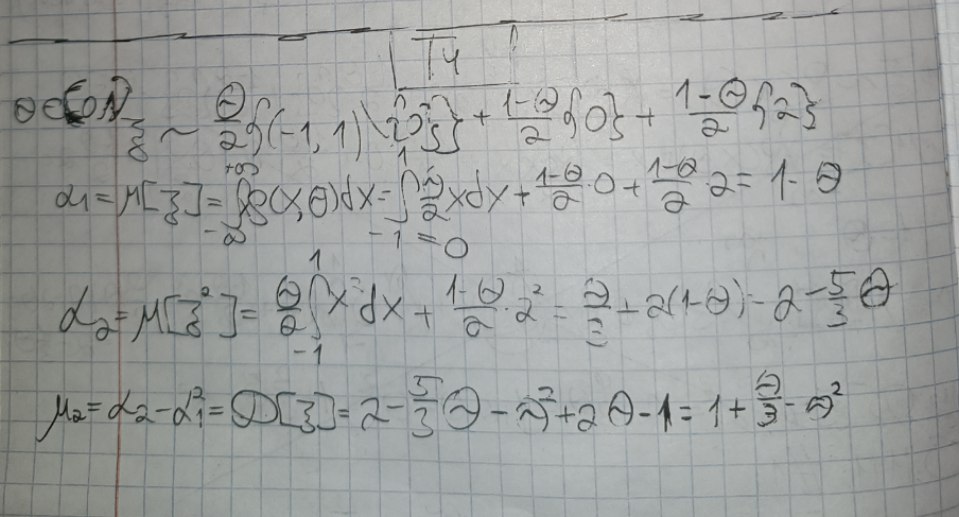 T4
θ ∈ [0,1]
ξ ~ θ/2 {(-1, 1) \ {0}} + (1-θ)/2 {0} + (1-θ)/2 {2}
α₁ = M[ξ] = ∫_{-∞}^{+∞} xg(x,θ)dx = ∫_{-1}^{1} θ/2 xdx + (1-θ)/2 · 0 + (1-θ)/2 · 2 = 1 - θ
= 0
α₂ = M[ξ²] = θ/2 ∫_{-1}^{1} x² dx + (1-θ)/2 · 2² = θ/3 + 2(1-θ) = 2 - 5/3 θ
μ₂ = α₂ - α₁² = D[ξ] = 2 - 5/3 θ - θ² + 2θ - 1 = 1 + θ/3 - θ²